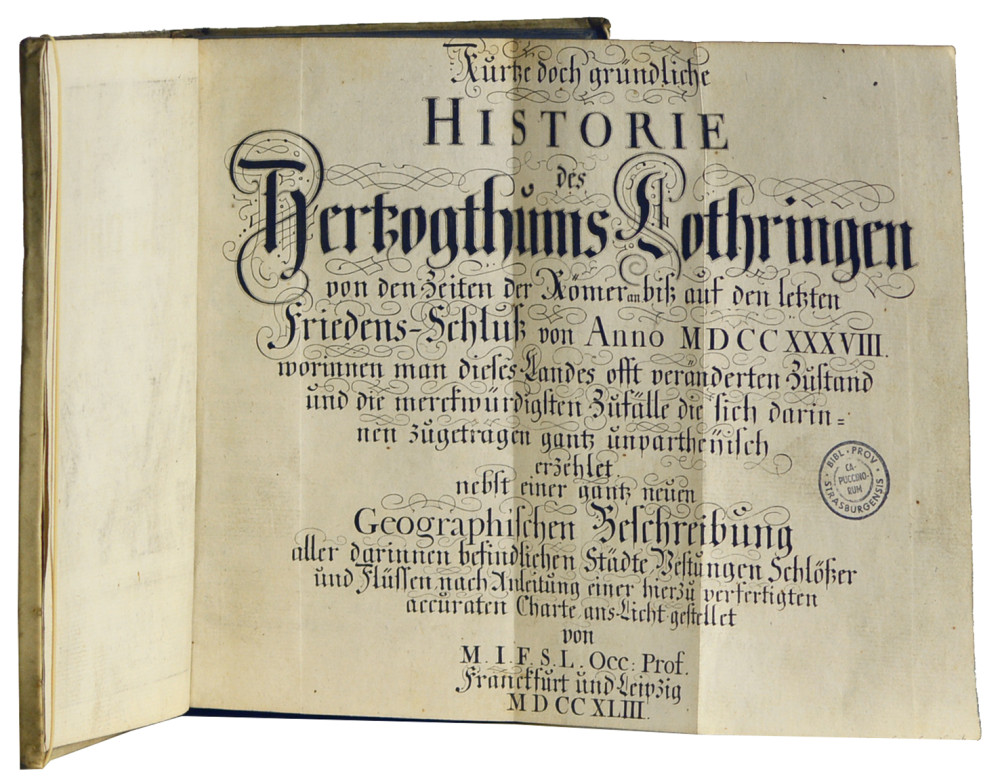 Kurtze doch gründliche
HISTORIE
des
Hertzogthums Lothringen
von den Zeiten der Römer an biß auf den letzten
Friedens-Schluß von Anno MDCCXXXVIII.
worinnen man dieses Landes offt veränderten Zustand
und die merckwürdigsten Zufälle die sich darin=
nen zugetragen gantz unpartheÿisch
erzehlet.
nebst einer gantz neuen
Geographischen Beschreibung
aller darinnen befindlichen Städte Vestungen Schlößer
und Flüssen nach Anleitung einer hierzu verfertigten
accuraten Charte ans-Licht gestellet
von
M. I. F. S. L. Occ: Prof.
Franckfurt und Leipzig
MDCCXLIII.
BIBL · PROV · STRASBURGENSIS ·
CA-
PUCCINO-
RUM